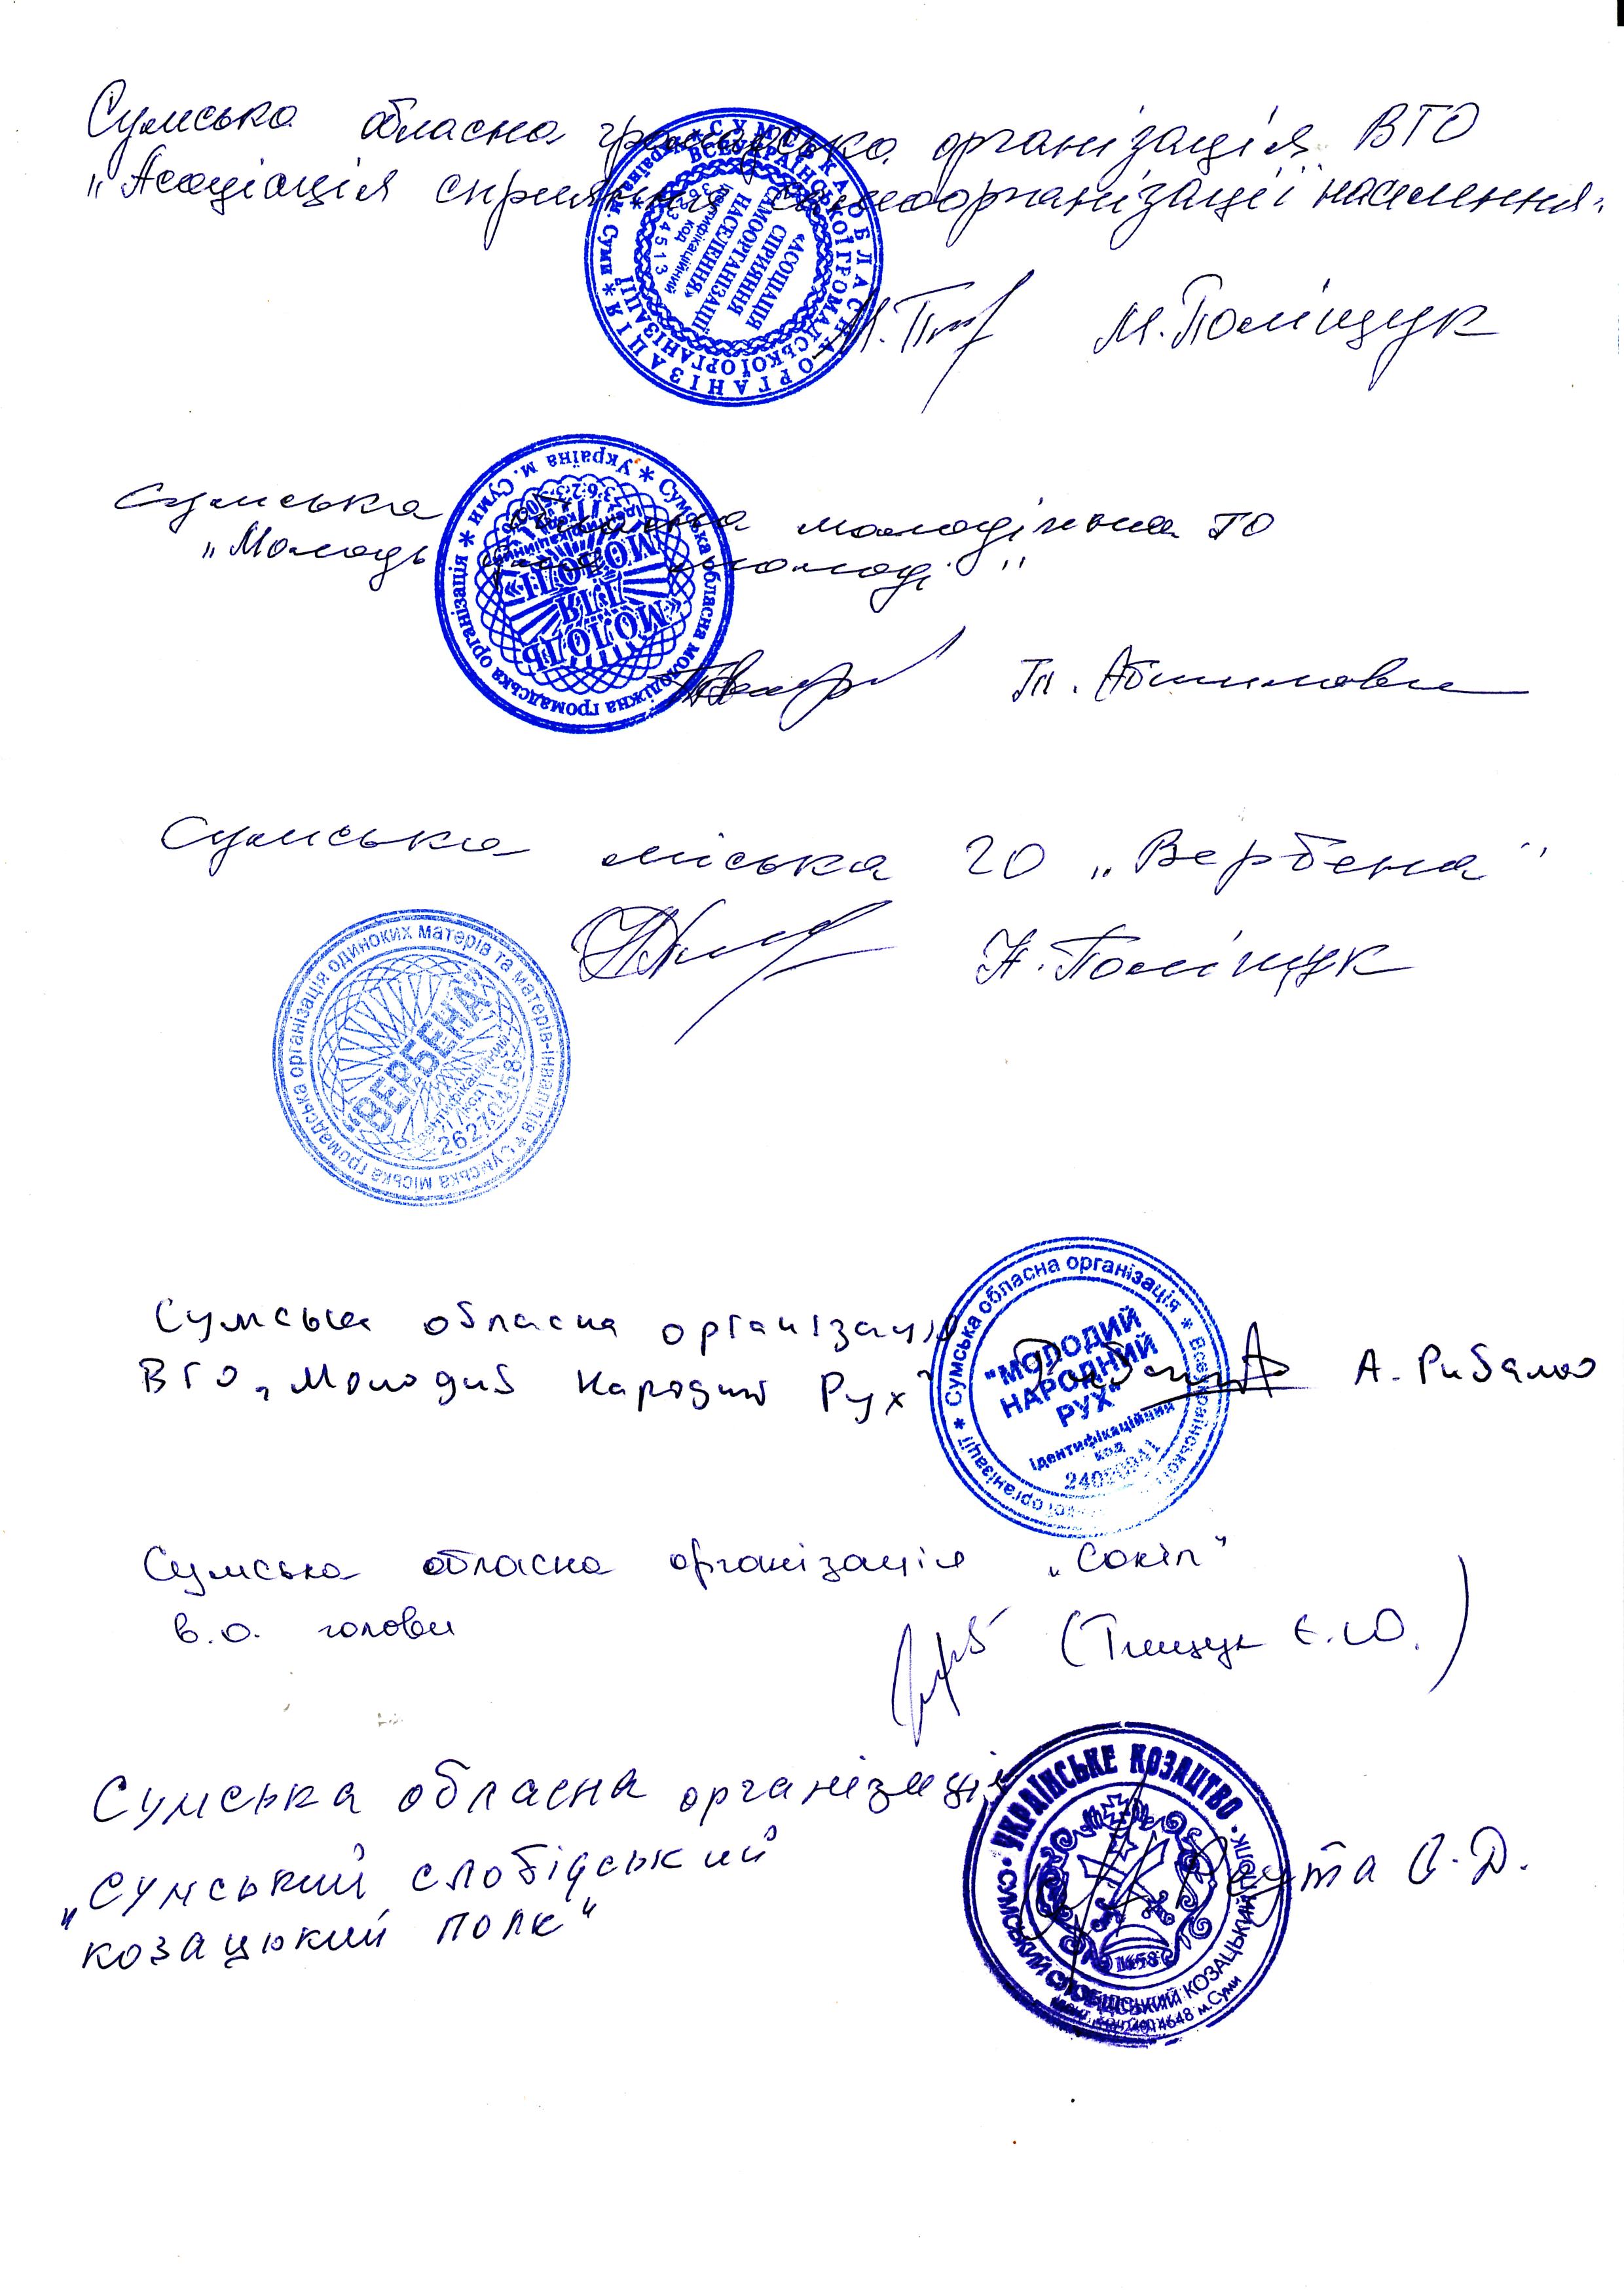 Сумська обласна громадська організація ВГО
„Асоціація сприяння самоорганізації населення"
СУМСЬКА ОБЛАСНА ОРГАНІЗАЦІЯ
ВСЕУКРАЇНСЬКОЇ ГРОМАДСЬКОЇ ОРГАНІЗАЦІЇ
«АСОЦІАЦІЯ
СПРИЯННЯ
САМООРГАНІЗАЦІЇ
НАСЕЛЕННЯ»
Ідентифікаційний
код
М. Поліщук
Сумська обласна молодіжна ГО
„Молодь для молоді"
Україна м. Суми * Сумська обласна молодіжна громадська організація
«МОЛОДЬ
ДЛЯ
МОЛОДІ»
Ідентифікаційний
код
Сумська міська ГО „Вербена"
Н. Поліщук
Сумська міська громадська організація одиноких матерів та матерів-інвалідів
"ВЕРБЕНА"
Ідентифікаційний
код
26270458
Сумська обласна організація
ВГО „Молодий Народний Рух" А. Рибалко
Сумська обласна організація * Всеукраїнської організації
"МОЛОДИЙ
НАРОДНИЙ
РУХ"
Ідентифікаційний
код
Сумська обласна організація „Сокіл"
в.о. голови (Тищук Є.Ю.)
Сумська обласна організація
„Сумський слобідський
козацький полк"
С.Д.
УКРАЇНСЬКЕ КОЗАЦТВО
СУМСЬКИЙ СЛОБІДСЬКИЙ КОЗАЦЬКИЙ ПОЛК
1658
м.Суми